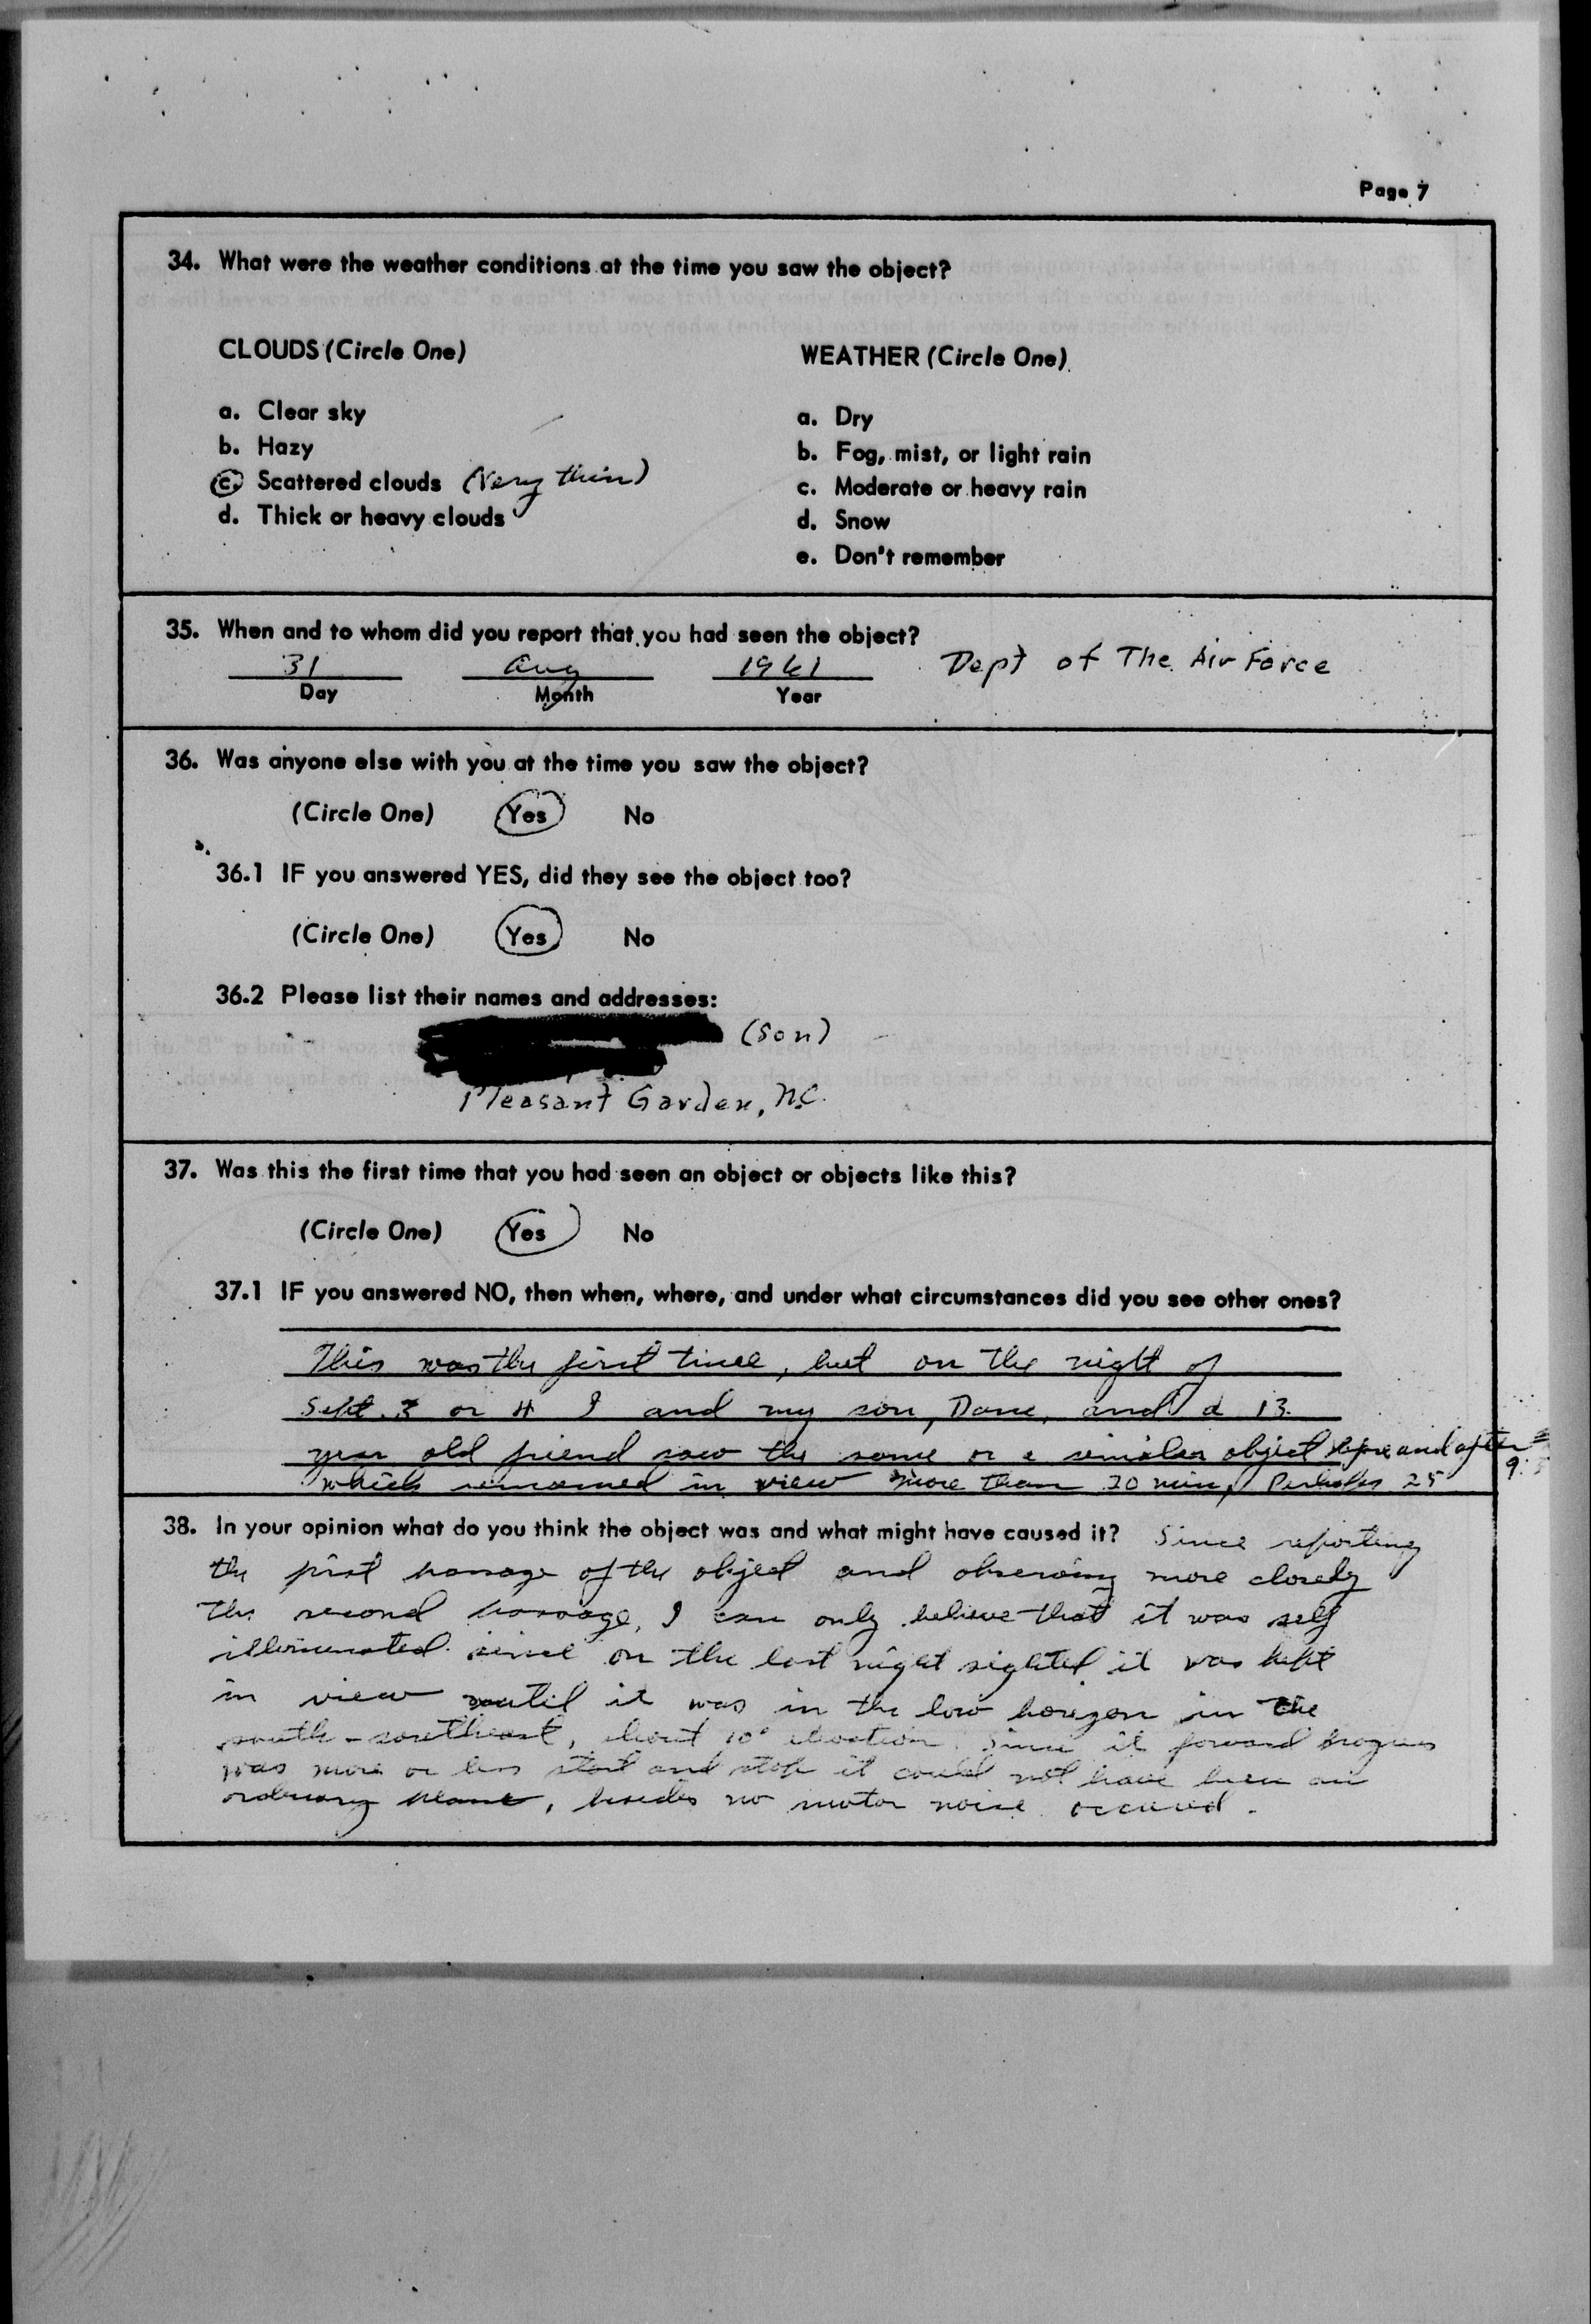 Page 7
34. What were the weather conditions at the time you saw the object?
CLOUDS (Circle One)
a. Clear sky
b. Hazy
c. Scattered clouds (Very thin)
d. Thick or heavy clouds
WEATHER (Circle One)
a. Dry
b. Fog, mist, or light rain
c. Moderate or heavy rain
d. Snow
e. Don't remember
35. When and to whom did you report that you had seen the object?
31 Aug 1961 Dept of The Air Force
Day Month Year
36. Was anyone else with you at the time you saw the object?
(Circle One) Yes No
36.1 IF you answered YES, did they see the object too?
(Circle One) Yes No
36.2 Please list their names and addresses:
(Son)
Pleasant Garden, N.C.
37. Was this the first time that you had seen an object or objects like this?
(Circle One) Yes No
37.1 IF you answered NO, then when, where, and under what circumstances did you see other ones?
This was the first time, but on the night of
Sept. 3 or 4 I and my son, and a 13
year old friend saw the same or a similar object before and after
which remained in view more than 20 min, Perhaps 25
38. In your opinion what do you think the object was and what might have caused it? Since reporting
the first passage of the object and observing more closely
the second passage, I can only believe that it was self
illuminated since on the last night sighted it was kept
in view until it was in the low horizon in the
south-southeast, about 10° elevation. Since it forward progress
was more or less start and stop it could not have been an
ordinary plane, besides no motor noise occured.